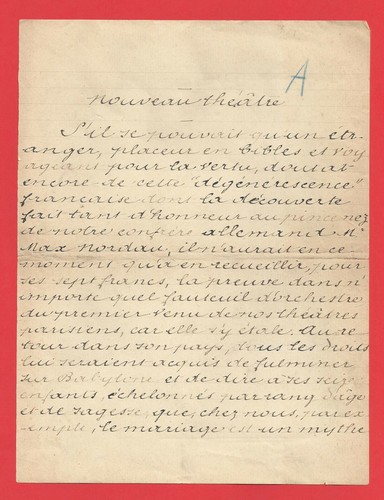 A
Nouveau théâtre
S'il se pouvait qu'un étr-
anger, placeur en bibles et voy
ageant pour la vertu, doutat
encore de cette "dégénerescence"
française dont la découverte
fait tant d'honneur au pince nez
de notre confrère allemand Mr
Max Nordau, il n'aurait en ce
moment qu'à en recueillir, pour
ses sept francs, la preuve dans n'
importe quel fauteuil d'orchestre
du premier venu de nos théâtres
parisiens, car elle s'y étale. Au re
tour dans son pays, tous les droits
lui seraient acquis de fulminer
sur Babylone et de dire à ses seize
enfants, échelonnés par rang d'âge
et de sagesse, que, chez nous, par ex
emple, le mariage est un mythe